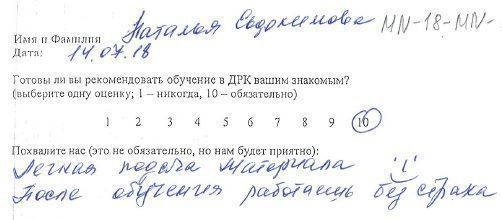 Имя и Фамилия Наталья Евдокимова MN-18-MN-
Дата: 14.07.18
Готовы ли вы рекомендовать обучение в ДРК вашим знакомым?
(выберите одну оценку; 1 – никогда, 10 – обязательно)
1 2 3 4 5 6 7 8 9 10
Похвалите нас (это не обязательно, но нам будет приятно):
Легкая подача материала !
После обучения работаешь без страха